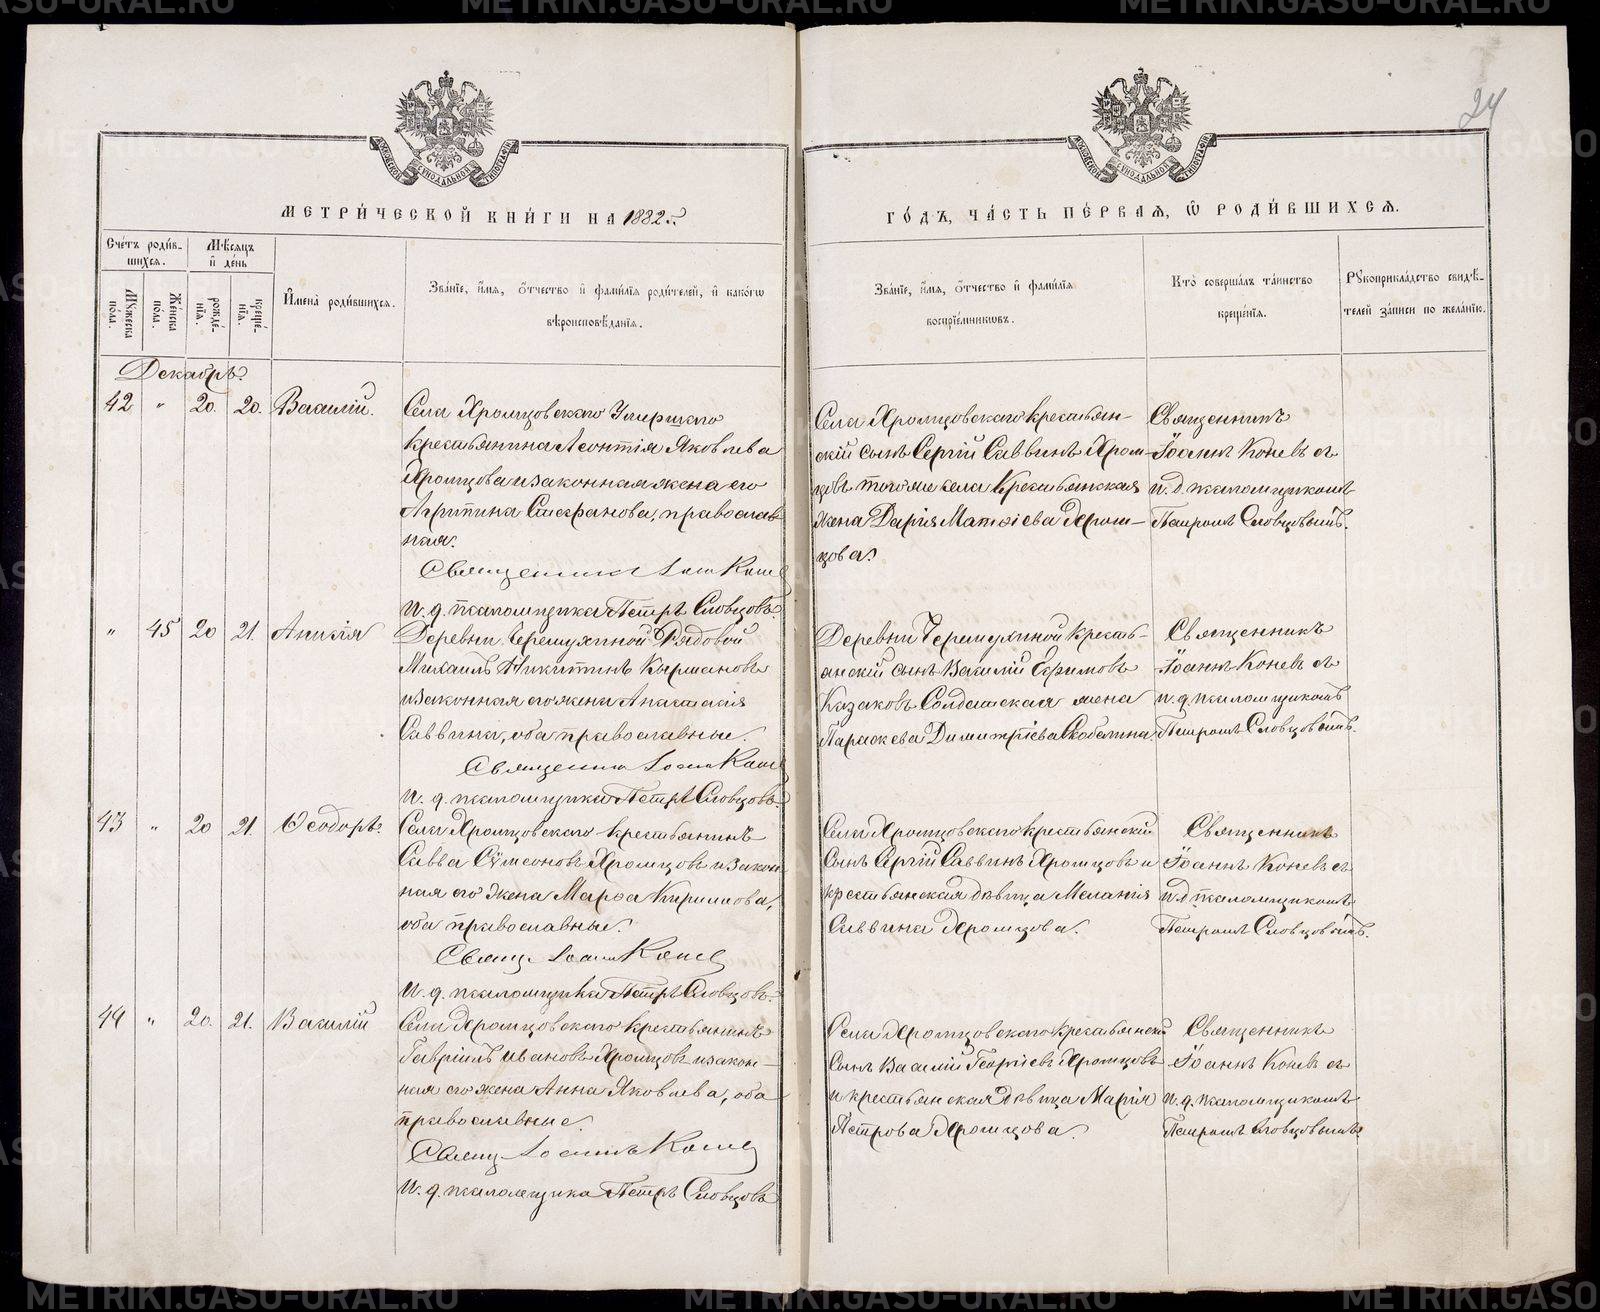 24
МОСКОВСКОЙ СѴНОДАЛЬНОЙ ТИПОГРАФІИ
МОСКОВСКОЙ СѴНОДАЛЬНОЙ ТИПОГРАФІИ
МЕТРИ́ЧЕСКОЙ КНИ́ГИ НА 1882 г.
ГО́ДЪ, ЧА́СТЬ ПЕ́РВАЯ, Ѡ҆ РОДИ́ВШИХСЯ.
Сче́тъ роди́в-
шихся.
Мѣ́сяцъ
и҆ де́нь
Мꙋ́жеска пола.
Же́нска пола.
рожде́-
нїя.
креще́-
нїя.
И҆мена̀ роди́вшихся.
Зва́нїе, и҆́мя, ѻ҆́тчество и҆ фами́лїя роди́телей, и҆ како́гѡ
вѣроисповѣ́данїя.
Зва́нїе, и҆́мя, ѻ҆́тчество и҆ фами́лїя
воспрїе́мникѡвъ.
Кто̀ соверша́лъ та́инство
креще́нїя.
Рꙋкоприкла́дство свидѣ́-
телей за́писи по жела́нїю.
Декабрь.
42 " 20. 20. Василій.
Села Хромцовскаго Умершаго
крестьянина Леонтія Яковлева
Хромцова и законная жена его
Агрипина Стефанова, православ
ная.
Священникъ Іоаннъ Коневъ
И. д. псаломщика Петръ Словцовъ.
Села Хромцовскаго крестьян-
скій сынъ Сергій Саввинъ Хром-
цовъ того же села Крестьянская
жена Дарія Матѳіева Хром-
цова.
Священникъ
Іоаннъ Коневъ съ
и. д. псаломщикомъ
Петромъ Словцовымъ.
" 45 20 21. Анисія
Деревни Черемухиной Рядовой
Михаилъ Никитинъ Кырмановъ
и законная его жена Анастасія
Саввина, оба православные.
Священникъ Іоаннъ Коневъ
И. д. псаломщика Петръ Словцовъ.
Деревни Черемухиной Кресть-
янскій сынъ Василій Ефимовъ
Казаковъ Солдатская жена
Параскева Димитріева Скобелина.
Священникъ
Іоаннъ Коневъ съ
и. д. псаломщикомъ
Петромъ Словцовымъ.
43 " 20 21. Ѳеодоръ.
Села Хромцовскаго крестьянинъ
Савва Сѵмеоновъ Хромцовъ и закон
ная его жена Марѳа Кириллова,
оба православные.
Свящ. Іоаннъ Коневъ
И. д. псаломщика Петръ Словцовъ.
Села Хромцовскаго крестьянскій
сынъ Сергій Саввинъ Хромцовъ и
крестьянская дѣвица Меланія
Саввина Хромцова.
Священникъ
Іоаннъ Коневъ съ
и. д. псаломщикомъ
Петромъ Словцовымъ.
44 " 20. 21. Василій
Села Хромцовскаго крестьянинъ
Гавріилъ Ивановъ Хромцовъ и закон-
ная его жена Анна Яковлева, оба
православные.
Свящ. Іоаннъ Коневъ
И. д. псаломщика Петръ Словцовъ
Села Хромцовскаго крестьянскій
сынъ Василій Георгіевъ Хромцовъ
и крестьянская дѣвица Марія
Петрова Хромцова.
Священникъ
Іоаннъ Коневъ съ
и. д. псаломщикомъ
Петромъ Словцовымъ.
METRIKI.GASU-URAL.RU